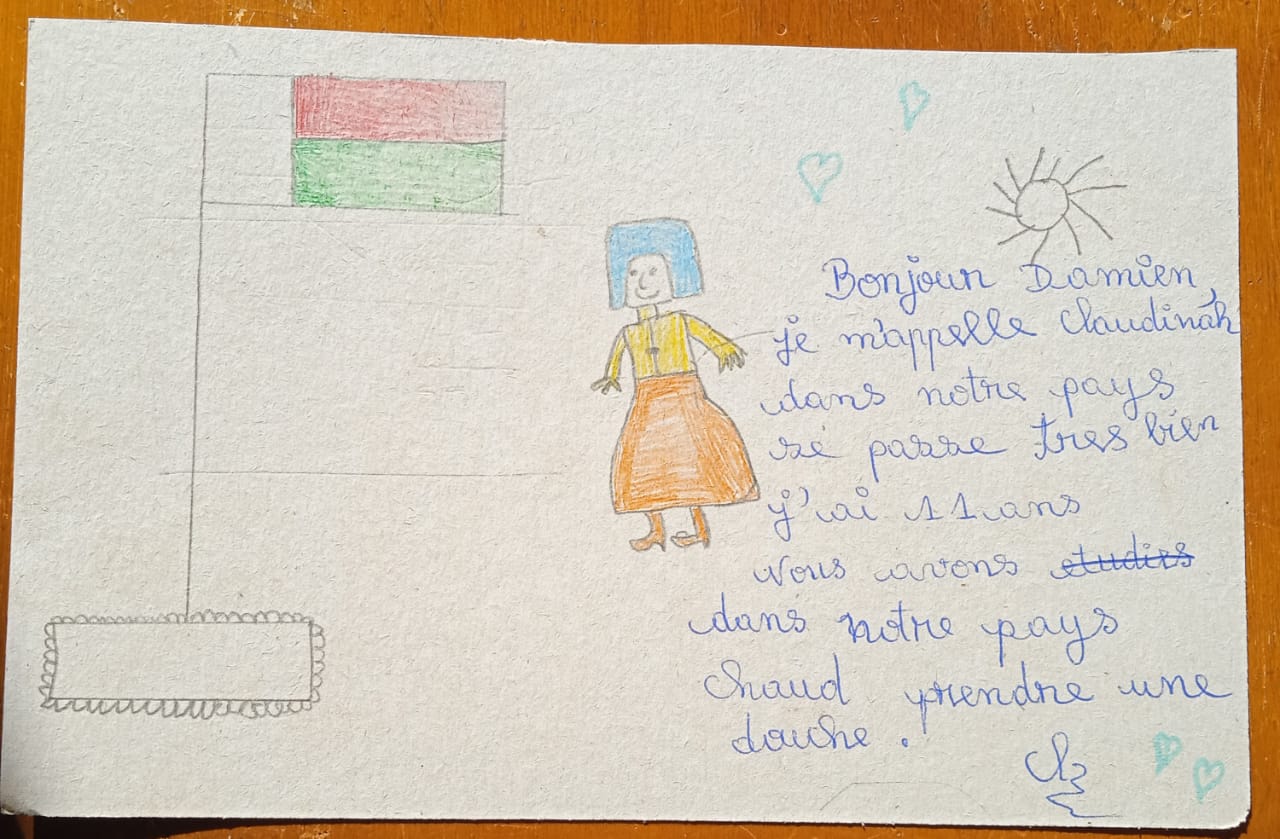 Bonjour Damien,
je m'appelle Claudinah
dans notre pays
se passe tres bien
j'ai 11 ans
Nous avons studies
dans notre pays
Chaud prendre une
douche.